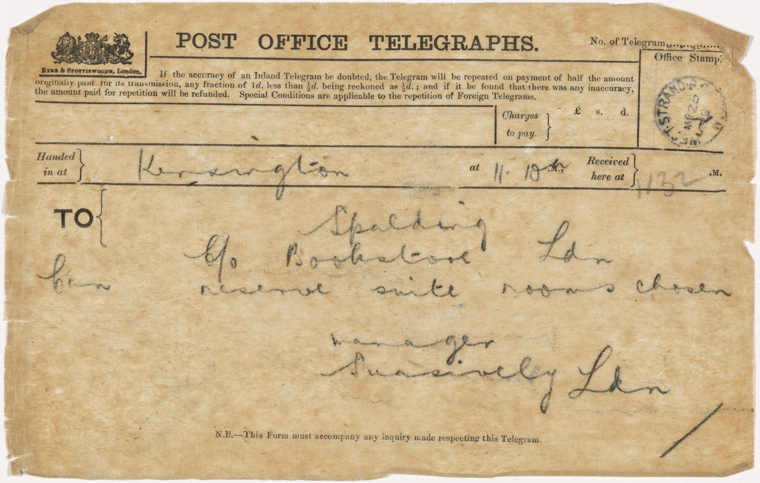 EYRE & SPOTTISWOODE, London.
POST OFFICE TELEGRAPHS.
No. of Telegram
If the accuracy of an Inland Telegram be doubted, the Telegram will be repeated on payment of half the amount
originally paid for its transmission, any fraction of 1d. less than ½d. being reckoned as ½d.; and if it be found that there was any inaccuracy,
the amount paid for repetition will be refunded. Special Conditions are applicable to the repetition of Foreign Telegrams.
Office Stamp.
STRAND
Charges
to pay.
£ s. d.
Handed
in at
Kensington
at 11.10 M.,
Received
here at
1132 .M.
TO
Spalding
C/o Bookstore Ldn
Can reserve suite rooms chosen
manager
Suasively Ldn
N.B.—This Form must accompany any inquiry made respecting this Telegram.